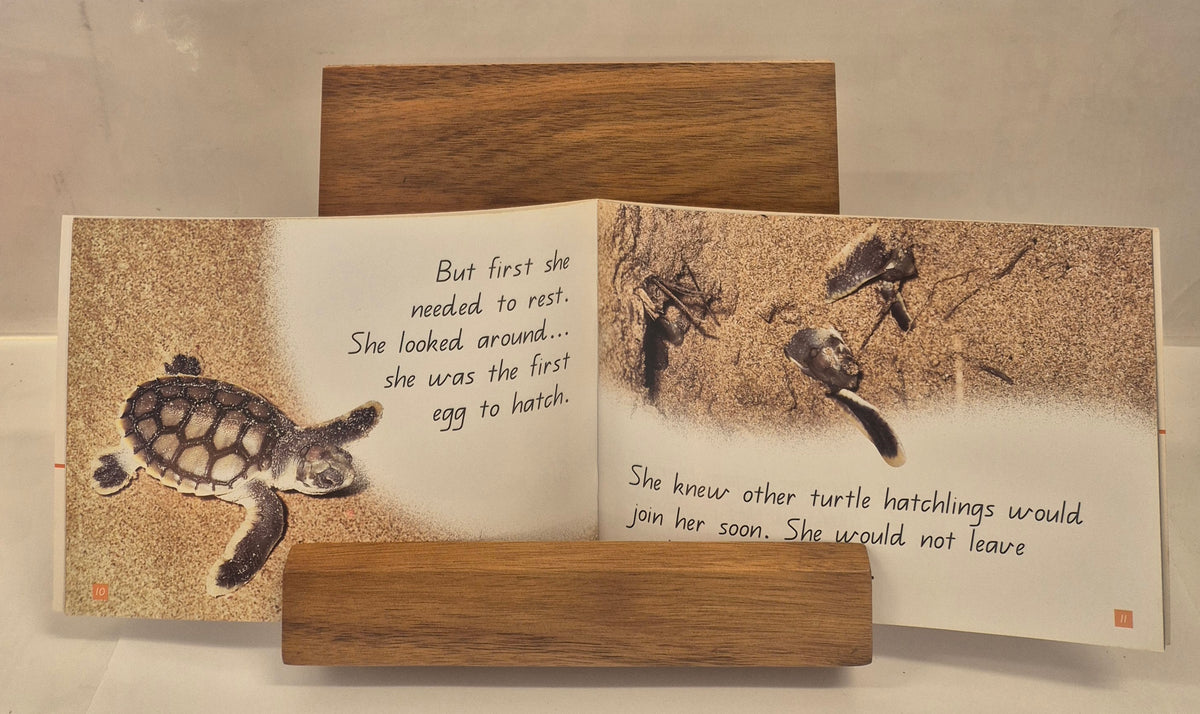 But first she
needed to rest.
She looked around...
she was the first
egg to hatch.
10
She knew other turtle hatchlings would
join her soon. She would not leave
11